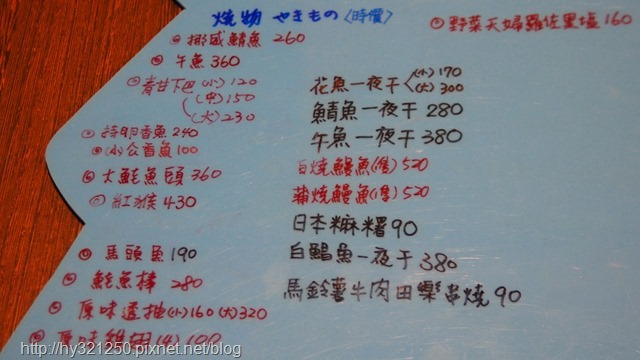 燒物 やきもの〈時價〉
挪威鯖魚 260
午魚 360
青甘下巴(小)120
(中)150
(大)230
持卵香魚 240
(小)公香魚100
大魷魚頭 360
紅猴 430
馬頭魚 190
魷魚棒 280
原味透抽(小)160 (大)320
原味
100
野菜天婦羅佐黑塩160
花魚一夜干(小)170
(大)300
鯖魚一夜干 280
午魚一夜干 380
白燒鰻魚(1隻)520
蒲燒鰻魚(1隻)520
日本麻糬90
白鯧魚一夜干 380
馬鈴薯牛肉田樂串燒 90
http://hy321250.pixnet.net/blog